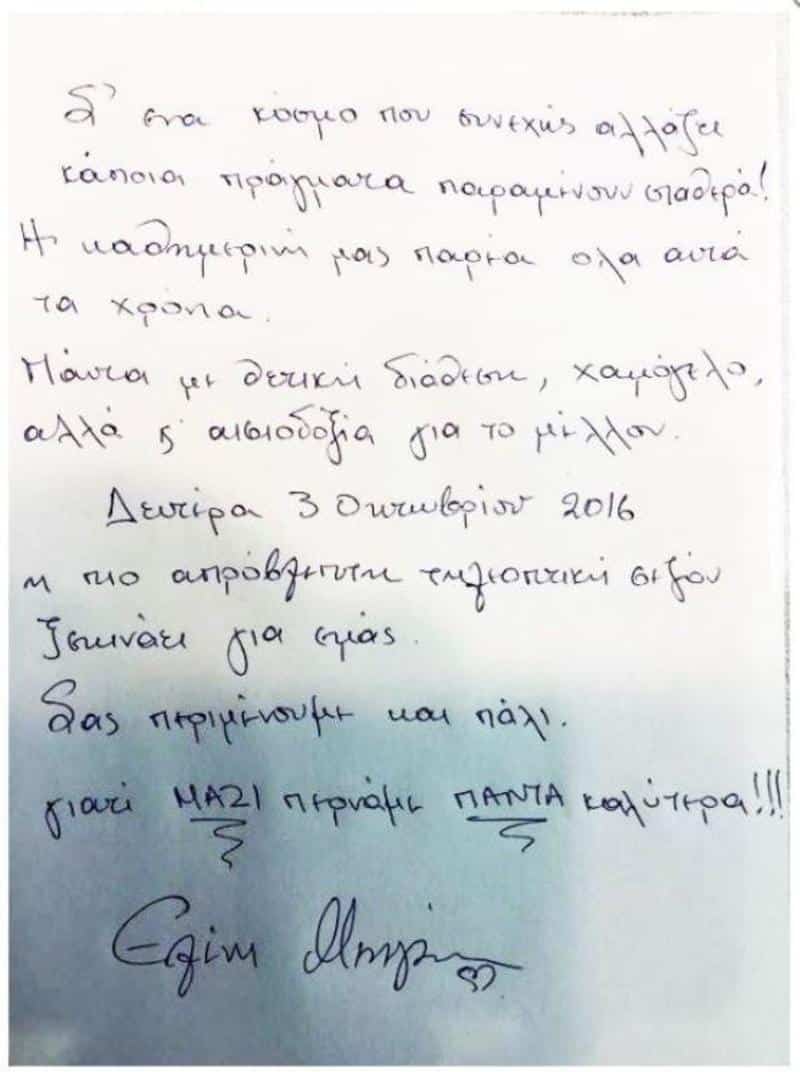 Σ' ένα κόσμο που συνεχώς αλλάζει
κάποια πράγματα παραμένουν σταθερά!
Η καθημερινή μας παρέα όλα αυτά
τα χρόνια.
Πάντα με θετική διάθεση, χαμόγελο,
αλλά κ' αισιοδοξία για το μέλλον.
Δευτέρα 3 Οκτωβρίου 2016
η πιο απρόβλεπτη τηλεοπτική σεζόν
ξεκινάει για εμάς.
Σας περιμένουμε και πάλι.
γιατί ΜΑΖΙ περνάμε ΠΑΝΤΑ καλύτερα!!!
Ελένη